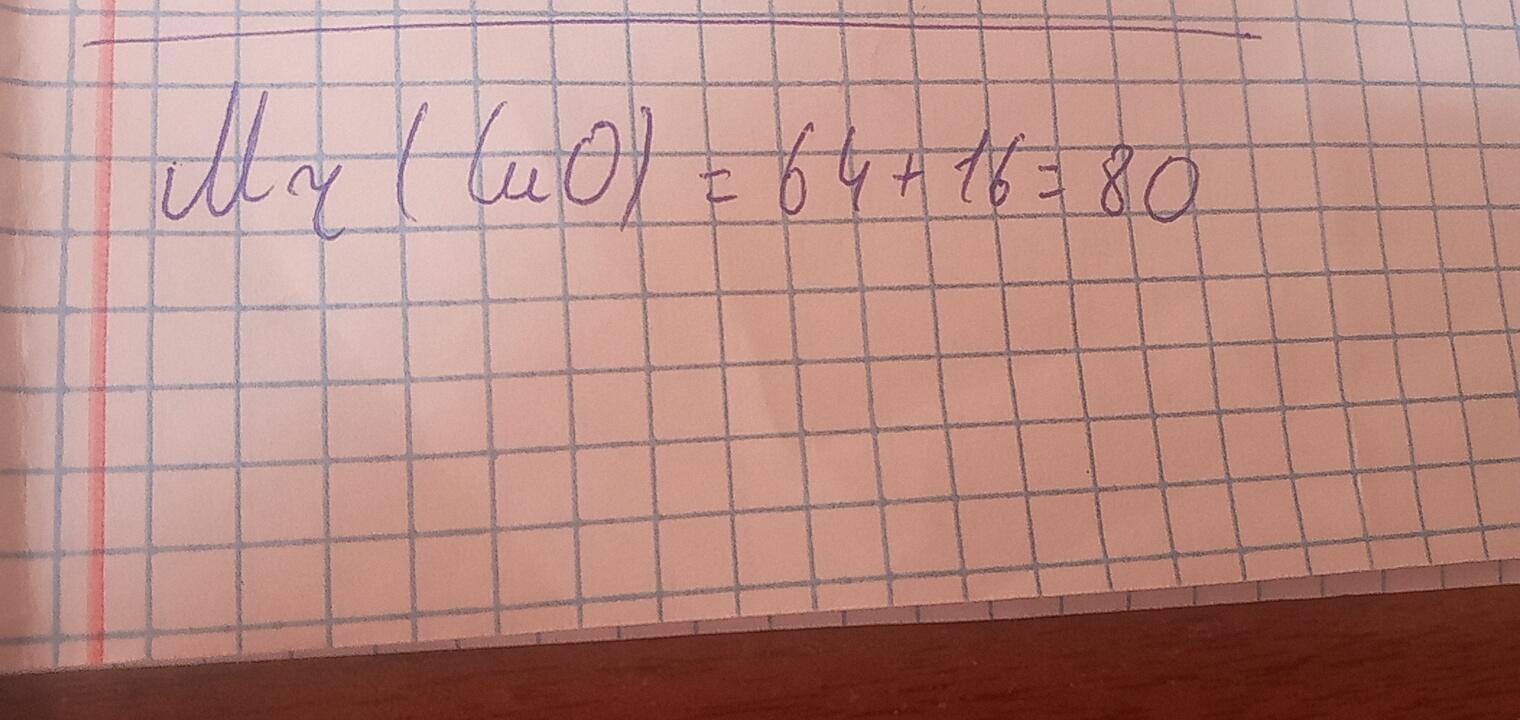 Mr (CuO) = 64 + 16 = 80